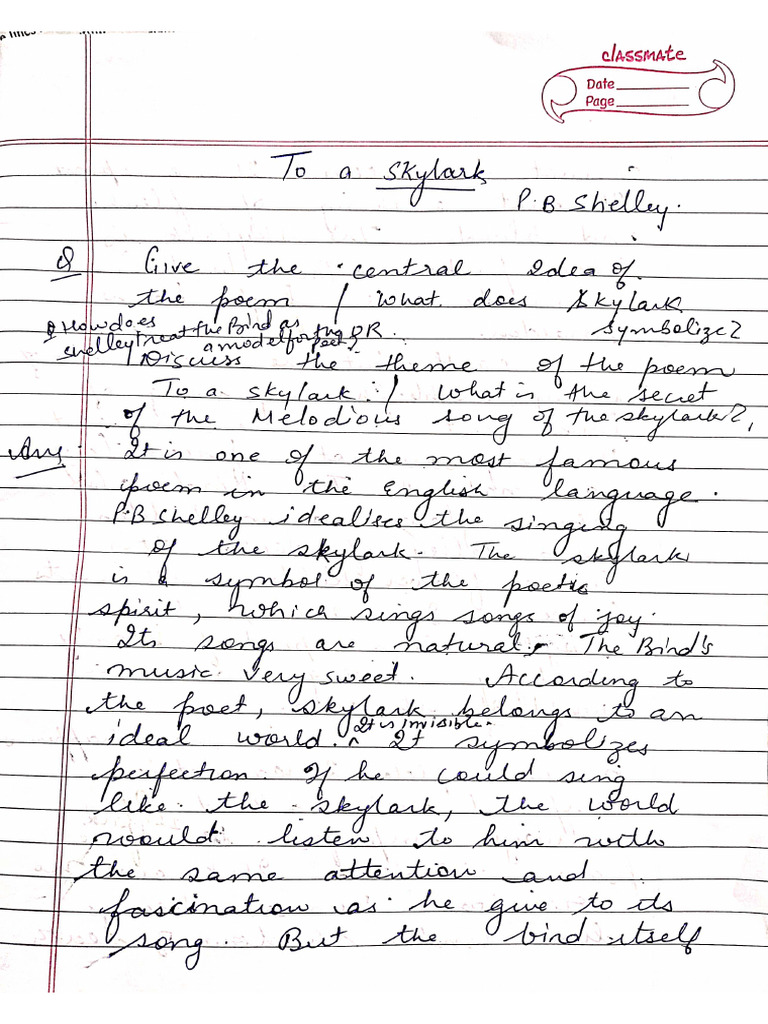 classmate
Date
Page
To a Skylark
P.B Shelley.
Q Give the central Idea of.
the poem / What does Skylark
Symbolize?
Q How does
Shelley treat the Bird as
a model for the Poet?
OR.
/ Discuss the theme of the poem
To a skylark. / What is the secret
of the Melodious song of the skylark?,
Ans It is one of the most famous
poem in the English language.
P.B Shelley idealises the singing
of the skylark. The skylark
is a symbol of the poetic
spirit, which sings songs of joy.
Its songs are natural. The Bird's
music very sweet. According to
the poet, skylark belongs to an
ideal world. It is invisible. It symbolizes
perfection. If he could sing
like the skylark, the world
would listen to him with
the same attention and
fascination as he give to its
song. But the bird itself